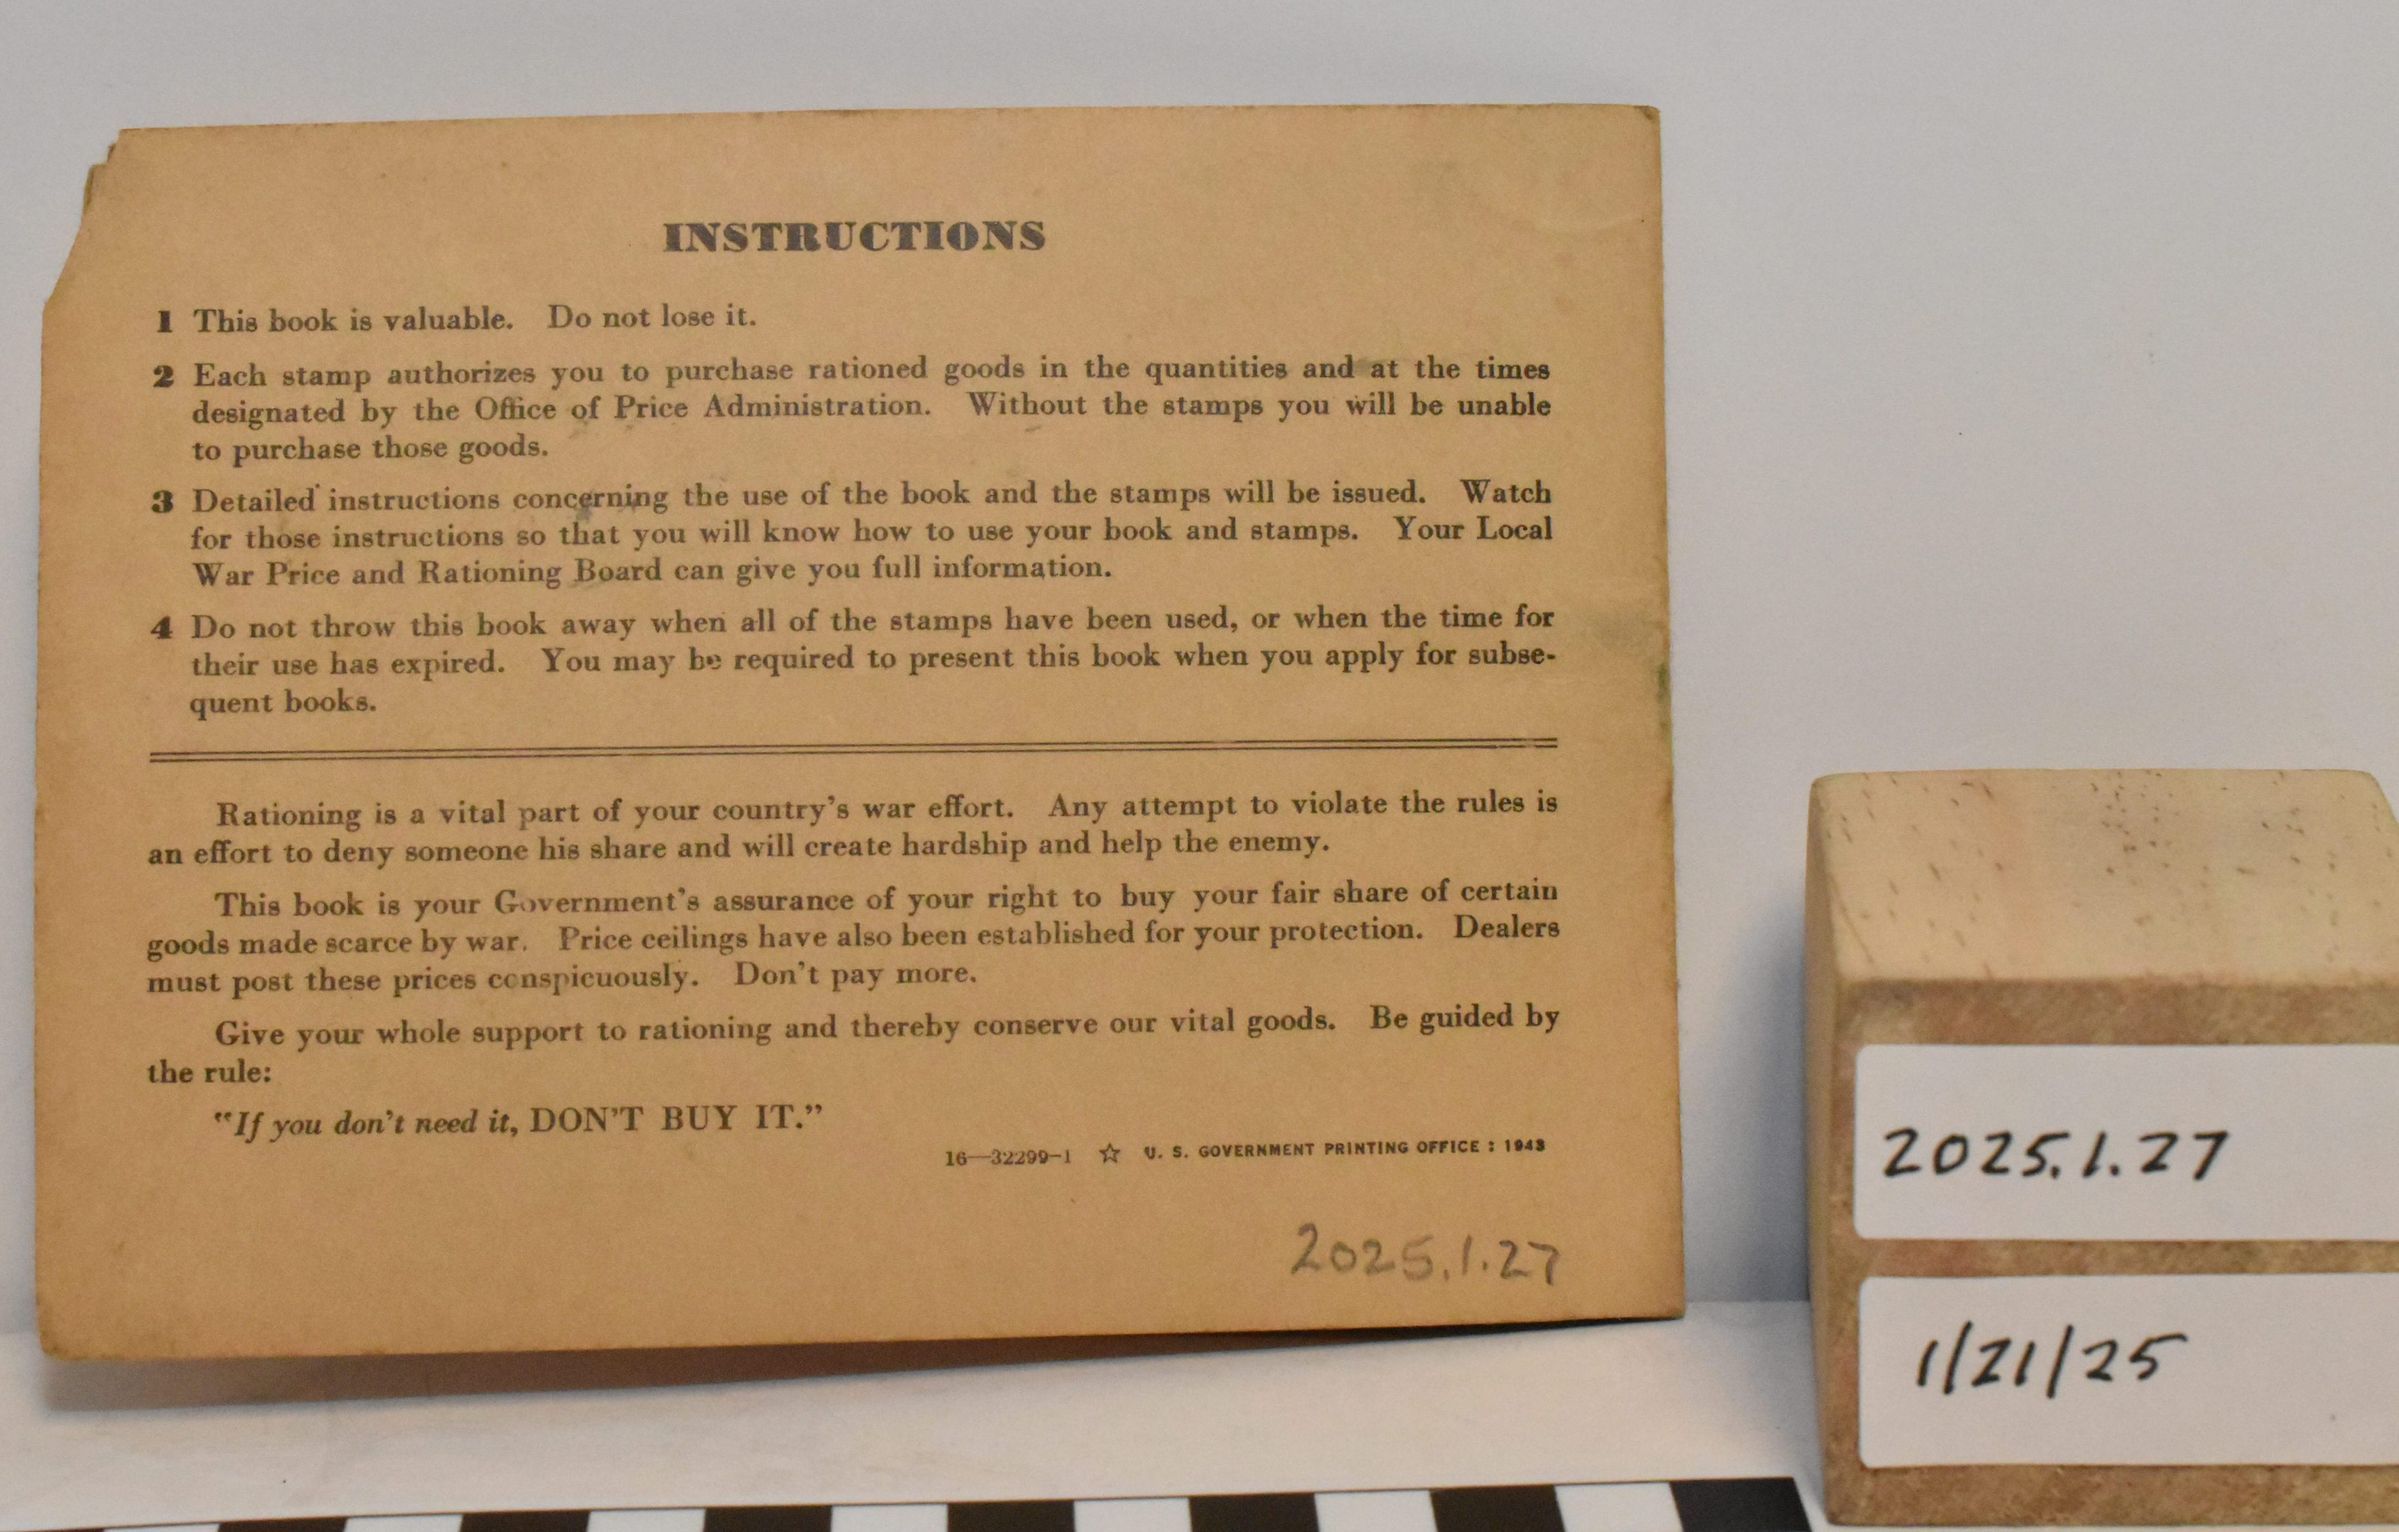 INSTRUCTIONS
1 This book is valuable. Do not lose it.
2 Each stamp authorizes you to purchase rationed goods in the quantities and at the times
designated by the Office of Price Administration. Without the stamps you will be unable
to purchase those goods.
3 Detailed instructions concerning the use of the book and the stamps will be issued. Watch
for those instructions so that you will know how to use your book and stamps. Your Local
War Price and Rationing Board can give you full information.
4 Do not throw this book away when all of the stamps have been used, or when the time for
their use has expired. You may be required to present this book when you apply for subse-
quent books.
Rationing is a vital part of your country's war effort. Any attempt to violate the rules is
an effort to deny someone his share and will create hardship and help the enemy.
This book is your Government's assurance of your right to buy your fair share of certain
goods made scarce by war. Price ceilings have also been established for your protection. Dealers
must post these prices conspicuously. Don't pay more.
Give your whole support to rationing and thereby conserve our vital goods. Be guided by
the rule:
"If you don't need it, DON'T BUY IT."
16—32299-1 ☆ U. S. GOVERNMENT PRINTING OFFICE : 1943
2025.1.27
2025.1.27
1/21/25